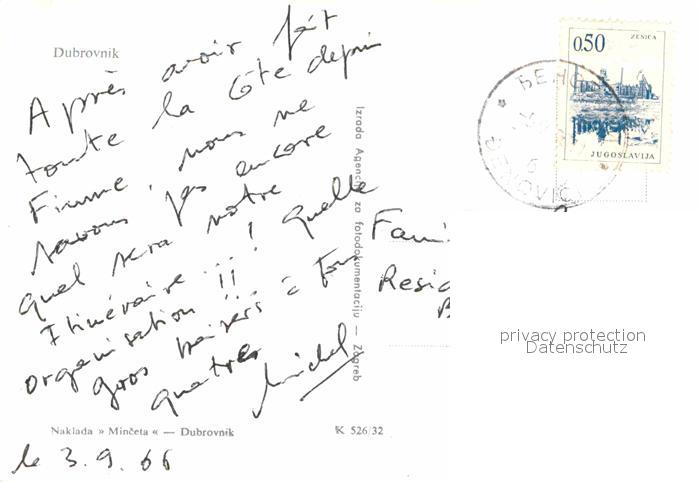 Dubrovnik
Après avoir fait
toute la Côte depuis
Fiume, nous ne
savons pas encore
quel sera notre
Itinéraire !! ! Quelle
organisation !!!
gros baisers à tous
quatre
Michel
Naklada » Minčeta « — Dubrovnik
K 526/32
le 3.9.66
Izrada Agencija za fotodokumentaciju — Zagreb
0.50
ZENICA
JUGOSLAVIJA
Fami
Resid
B
privacy protection
Datenschutz